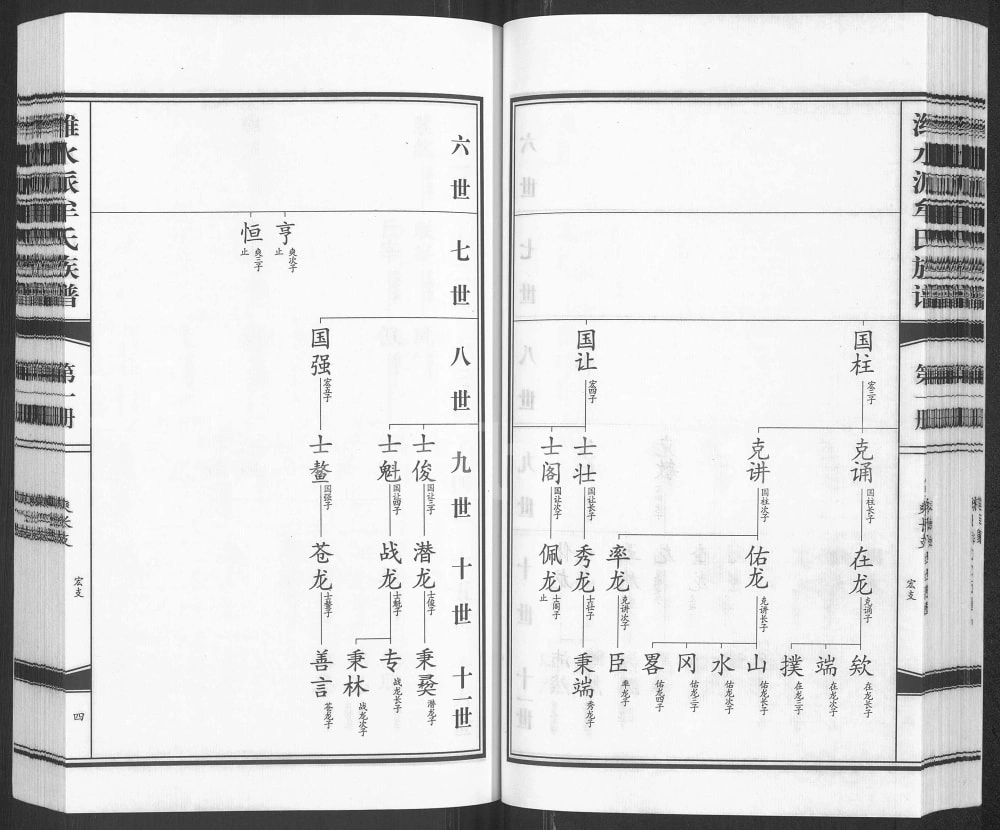 潍水派牟氏族谱
第一册
宏支
国柱
宏三子
国让
宏四子
克诵
国柱长子
克讲
国柱次子
士壮
国让长子
士阁
国让次子
在龙
克诵子
佑龙
克讲长子
率龙
克讲次子
秀龙
士壮子
佩龙
士阁子
止
欸
在龙长子
端
在龙次子
撲
在龙三子
山
佑龙长子
水
佑龙次子
冈
佑龙三子
畧
佑龙四子
臣
率龙子
秉端
秀龙子
六世
七世
八世
九世
十世
十一世
亨
奭次子
止
恒
奭三子
止
国强
宏五子
士俊
国让三子
士魁
国让四子
士鳌
国强子
潜龙
士俊子
战龙
士魁子
苍龙
士鳌子
秉彛
潜龙子
专
战龙长子
秉林
战龙次子
善言
苍龙子
潍水派牟氏族谱
第一册
宏支
四